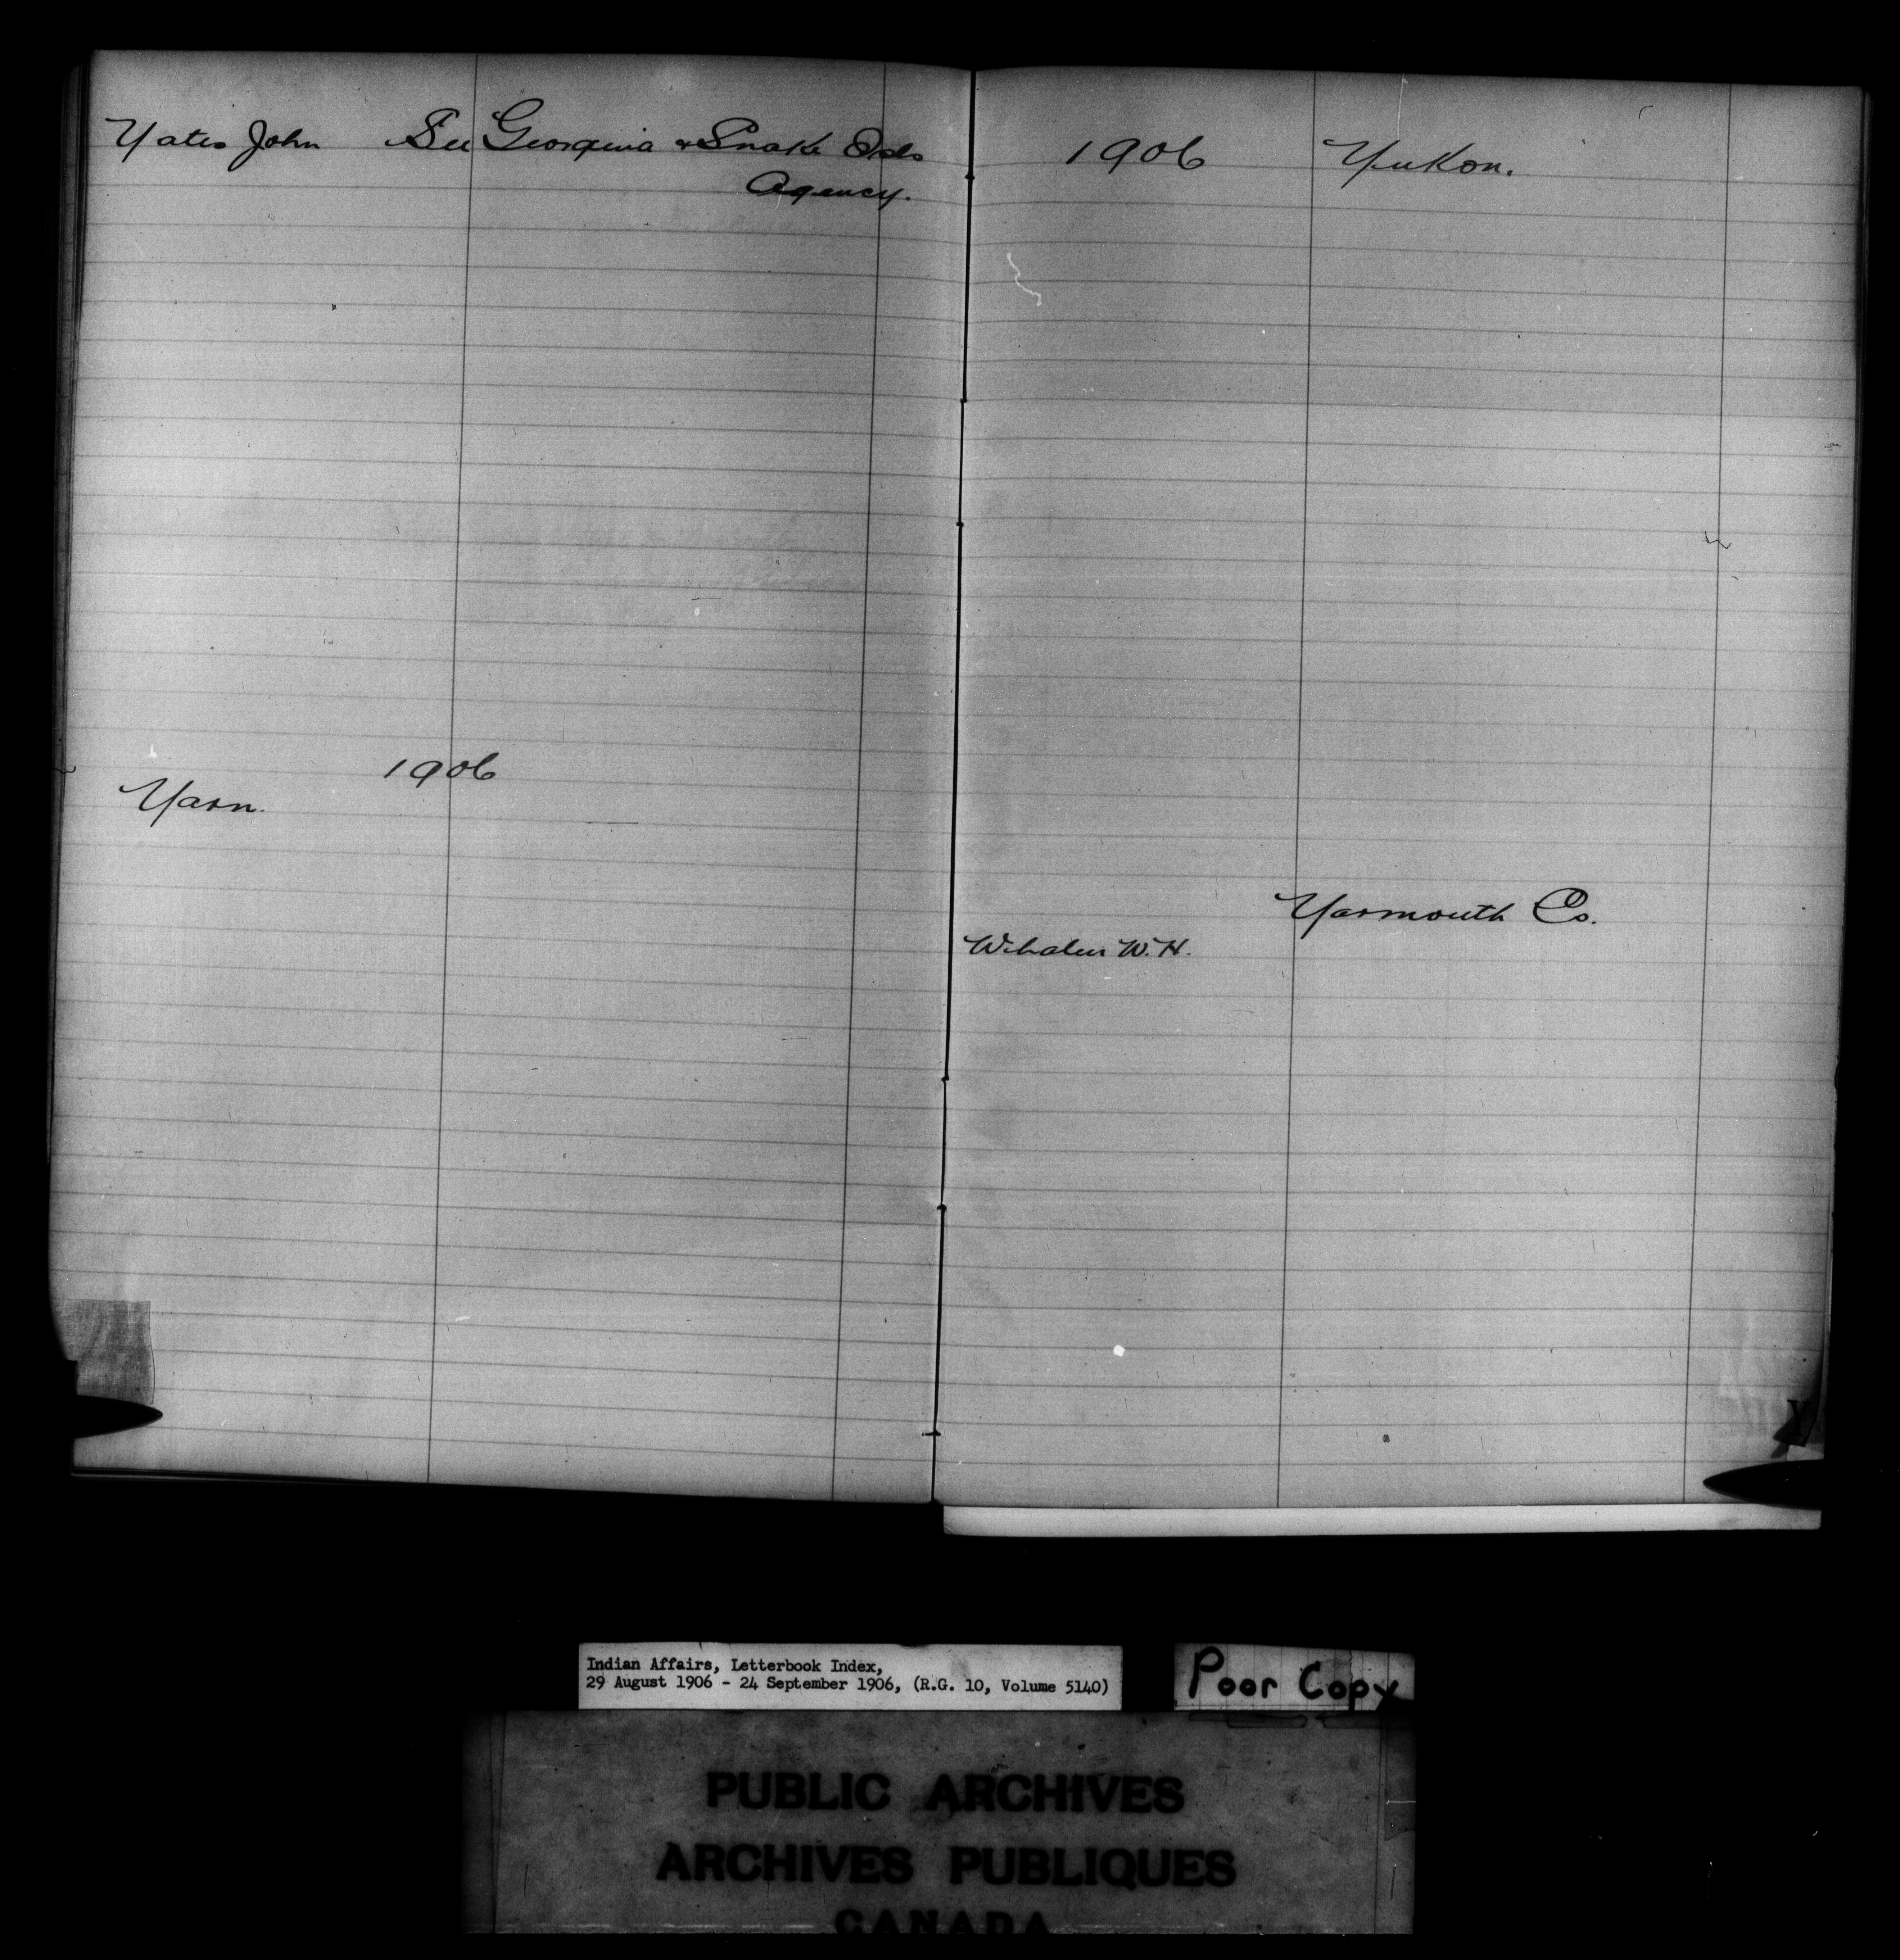 Yates John See Georgina & Snake Isds
Agency.
1906
Yarn.
1906 Yukon.
Yarmouth Co.
Whalen W.H.
Y
Indian Affairs, Letterbook Index,
29 August 1906 - 24 September 1906, (R.G. 10, Volume 5140)
Poor Copy
PUBLIC ARCHIVES
ARCHIVES PUBLIQUES
CANADA